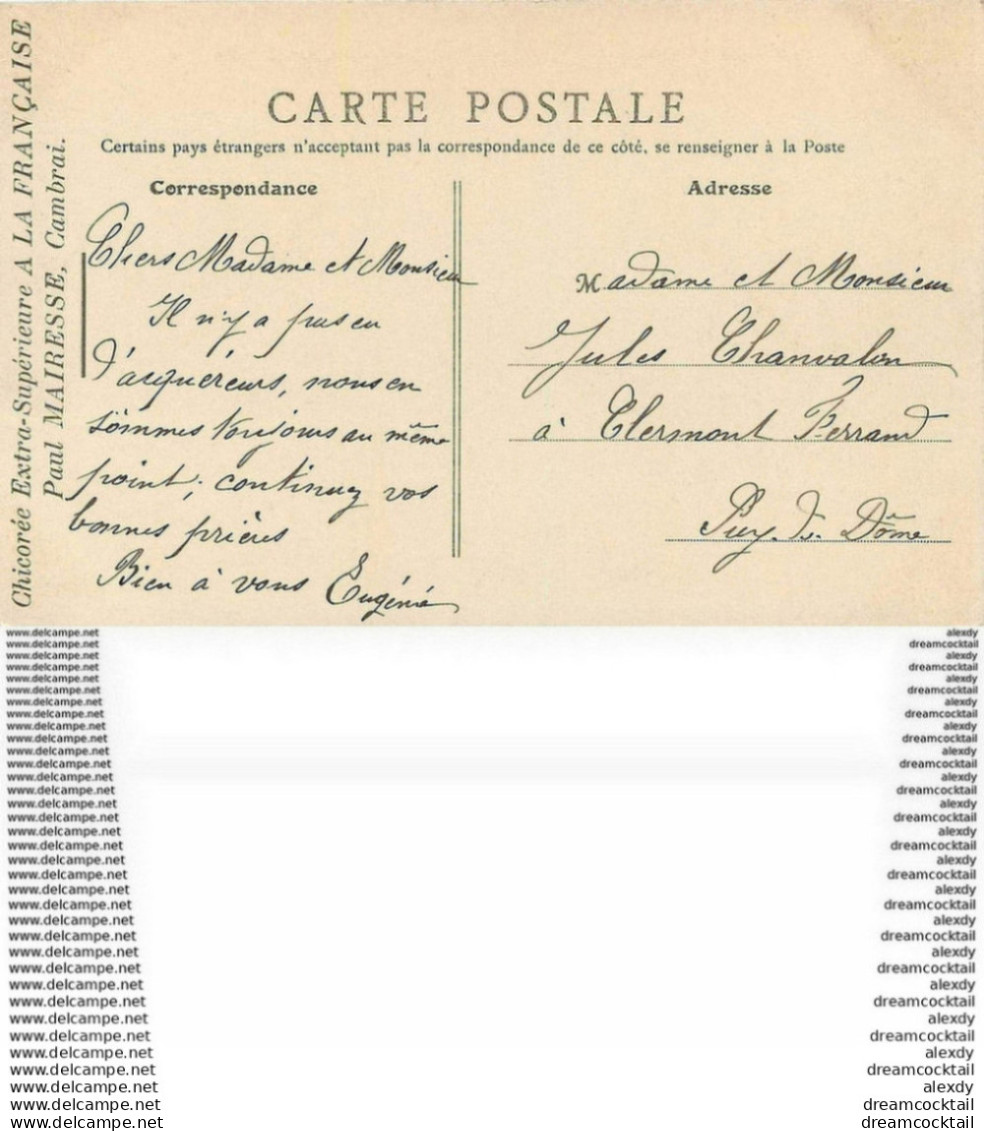 Chicorée Extra-Supérieure A LA FRANÇAISE
Paul MAIRESSE, Cambrai.
CARTE POSTALE
Certains pays étrangers n'acceptant pas la correspondance de ce côté, se renseigner à la Poste
Correspondance
Chers Madame et Monsieur
Il n'y a pas eu
d'acquéreurs, nous en
sommes toujours au même
point; continuez vos
bonnes prières
Bien à vous Eugénie
Adresse
Madame et Monsieur
Jules Chanvalon
à Clermont Ferrand
Puy-de-Dôme
www.delcampe.net alexdy
www.delcampe.net dreamcocktail
www.delcampe.net alexdy
www.delcampe.net dreamcocktail
www.delcampe.net alexdy
www.delcampe.net dreamcocktail
www.delcampe.net alexdy
www.delcampe.net dreamcocktail
www.delcampe.net alexdy
www.delcampe.net dreamcocktail
www.delcampe.net alexdy
www.delcampe.net dreamcocktail
www.delcampe.net alexdy
www.delcampe.net dreamcocktail
www.delcampe.net alexdy
www.delcampe.net dreamcocktail
www.delcampe.net alexdy
www.delcampe.net dreamcocktail
www.delcampe.net alexdy
www.delcampe.net dreamcocktail
www.delcampe.net alexdy
www.delcampe.net dreamcocktail
www.delcampe.net alexdy
www.delcampe.net dreamcocktail
www.delcampe.net alexdy
www.delcampe.net dreamcocktail
www.delcampe.net alexdy
www.delcampe.net dreamcocktail
www.delcampe.net alexdy
www.delcampe.net dreamcocktail
www.delcampe.net alexdy
www.delcampe.net dreamcocktail
www.delcampe.net alexdy
www.delcampe.net dreamcocktail
www.delcampe.net dreamcocktail